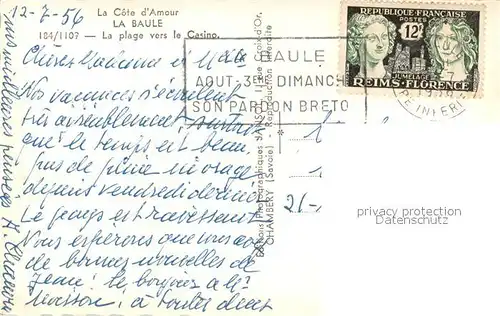 12-7-56
La Côte d'Amour
LA BAULE
184/1107 — La plage vers le Casino.
Chères Madame et
Nos vacances s'écoulent
très agréablement, surtout
que le temps est beau,
pas de pluie ni orage
depuis vendredi dernier
Le pays est ravissant
Nous espérons que vous avez
de bonnes nouvelles de
Jeanne! Le bonjour à Mr
à toutes deux
nos meilleures pensées
LA BAULE
AOUT 3EME DIMANCHE
SON PARDON BRETO
REPUBLIQUE FRANÇAISE
POSTES
12F
JUMELAGE
REIMS-FLORENCE
Editions Photographiques
Croix-d'Or,
CHAMBERY (Savoie) - Reproduction interdite
privacy protection
Datenschutz